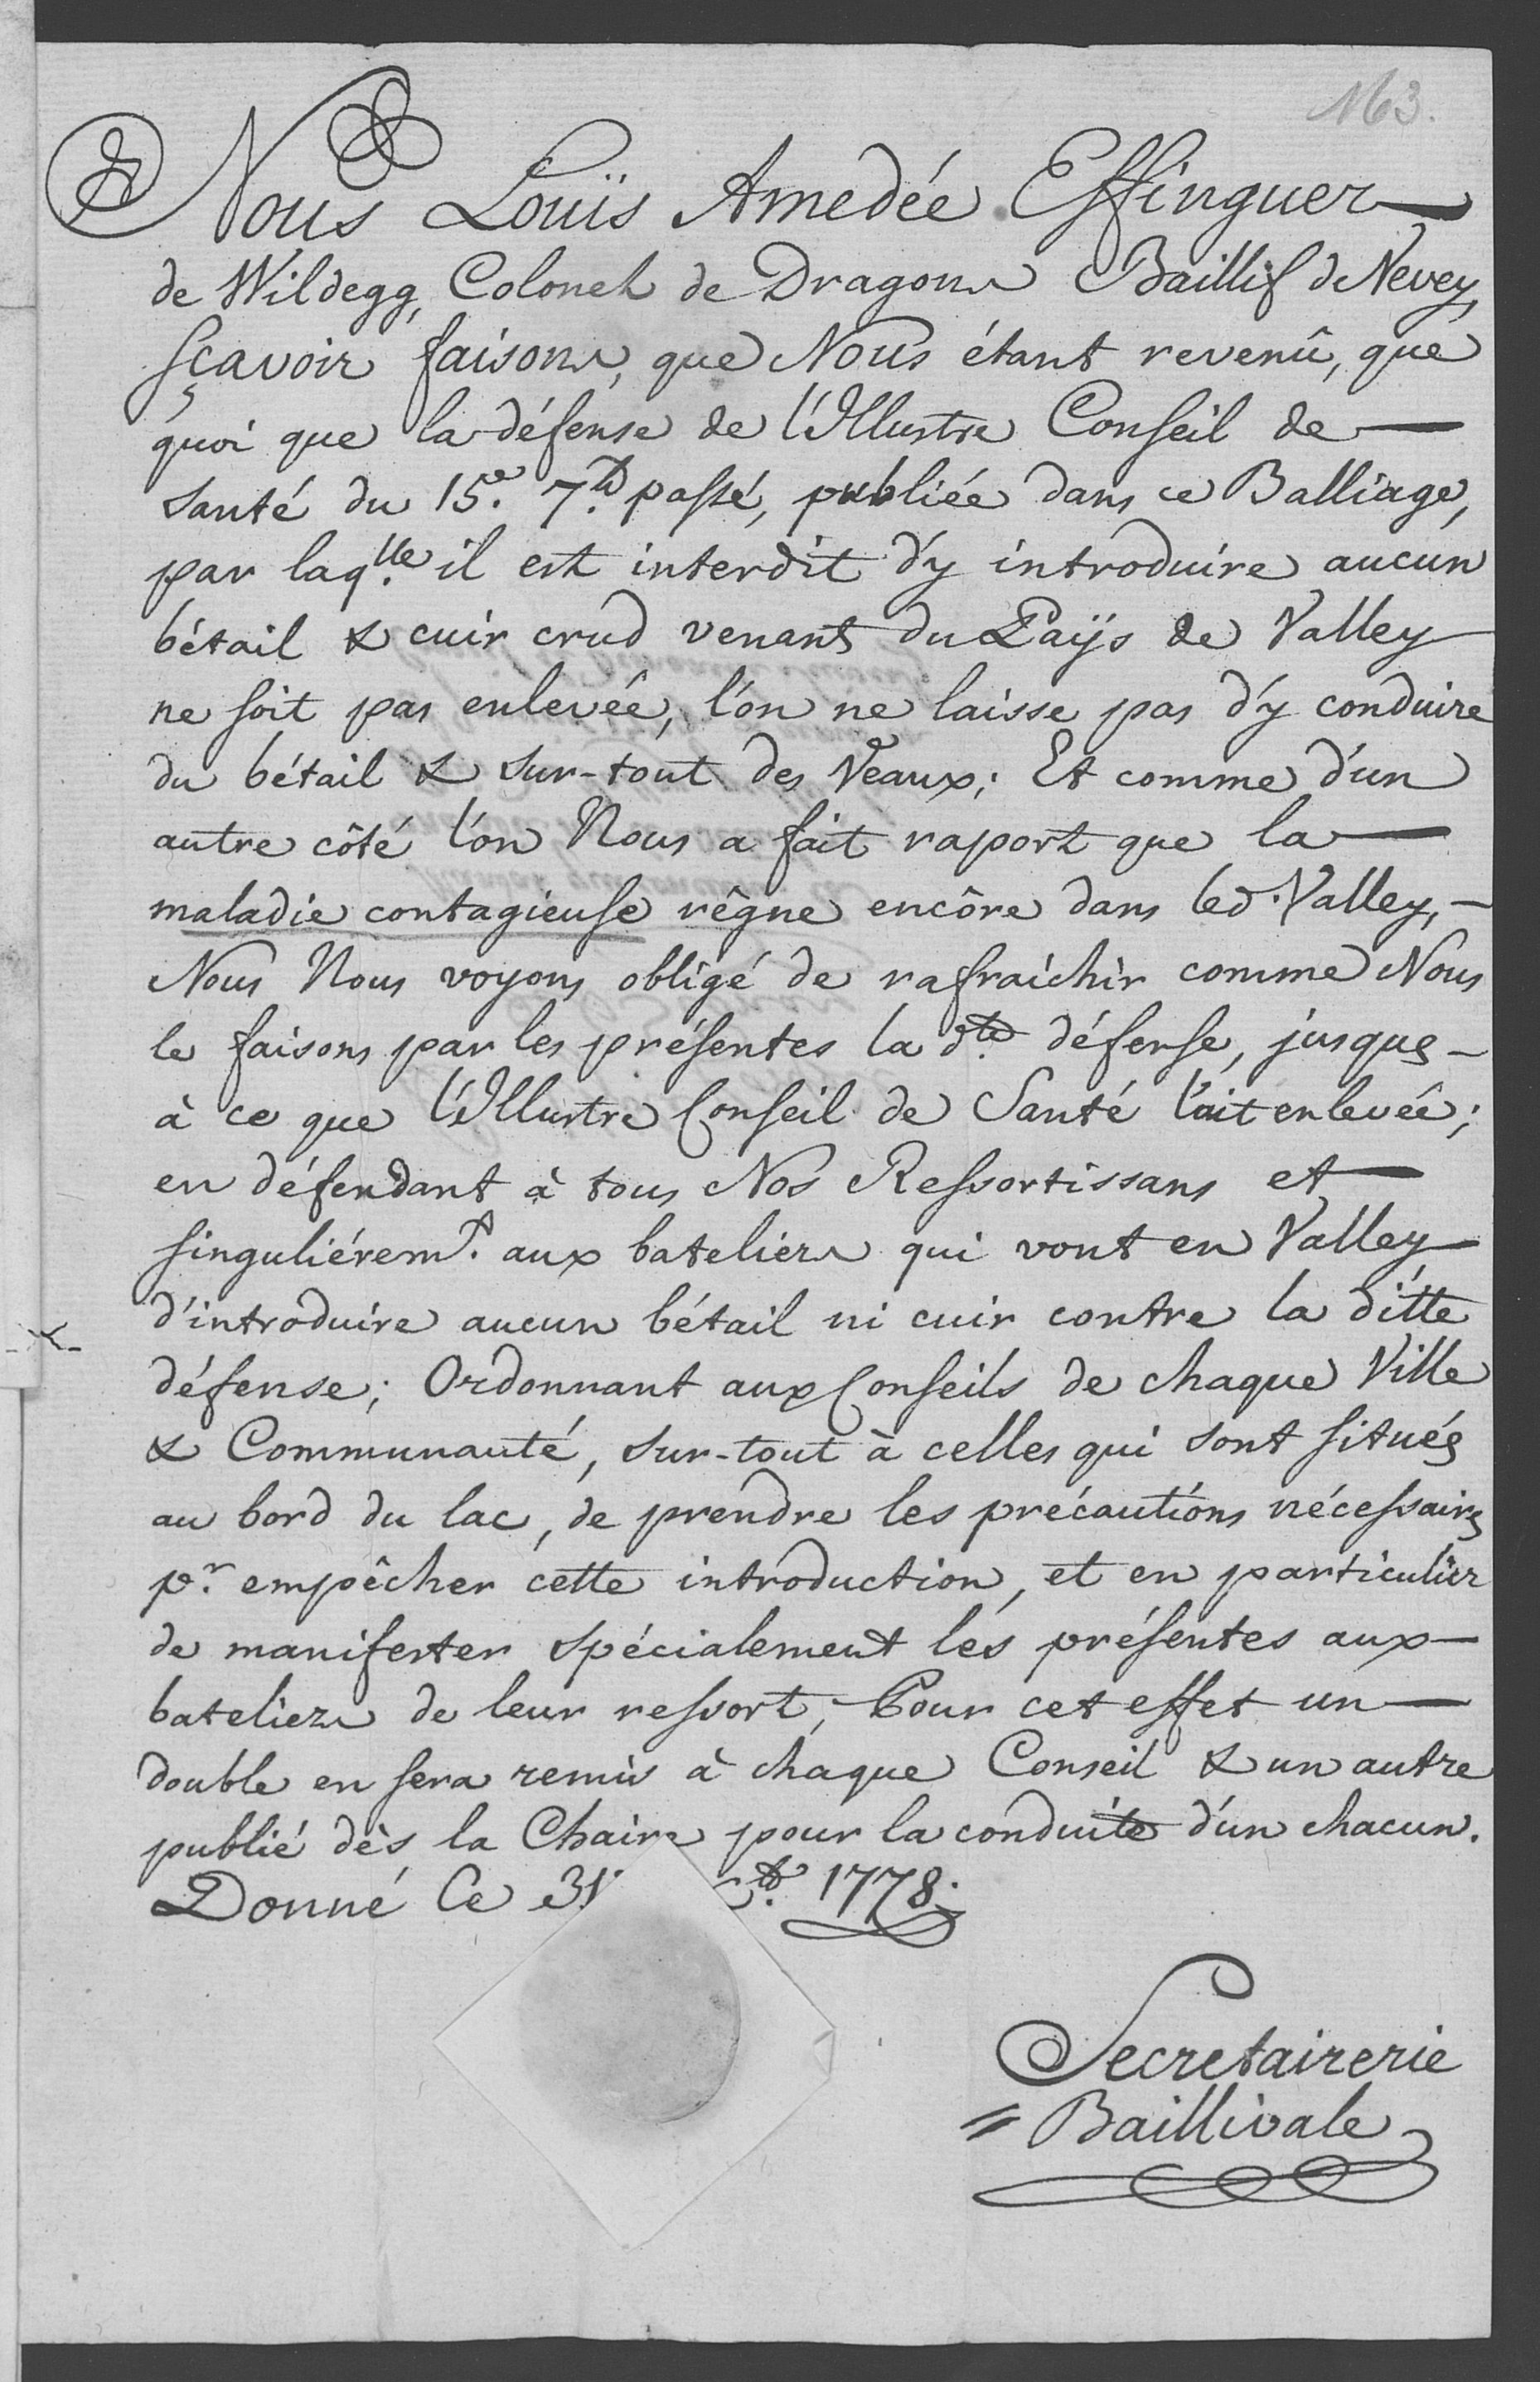 163.
Nous Louïs Amedée Effinguer
de Wildegg, Colonel de Dragons Baillif de Vevey,
sçavoir faisons, que Nous étant revenû, que
quoi que la défense de l'Illustre Conseil de
Santé du 15.e 7.b passé, publiée dans ce Balliage,
par laq.lle il est interdit d'y introduire aucun
bétail & cuir crud venant du Païs de Valley
ne soit pas enlevéé, l'on ne laisse pas d'y conduire
du bétail & sur-tout des Veaux; Et comme d'un
autre côté l'on Nous a fait raport que la
maladie contagieuse rêgne encôre dans led. Valley,
Nous Nous voyons obligé de rafraichir comme Nous
le faisons par les présentes la d.te défense, jusques
à ce que l'Illustre Conseil de Santé l'ait enlevéé;
en défendant à tous Nos Ressortissans et
singuliérem.t aux bateliers qui vont en Valley
d'introduire aucun bétail ni cuir contre la ditte
défense; Ordonnant aux Conseils de chaque Ville
& Communauté, sur-tout à celles qui sont situés
au bord du lac, de prendre les précautions nécessaires
p.r empêcher cette introduction, et en particulier
de manifester spécialement les présentes aux
bateliers de leur ressort; Pour cet effet un
double en sera remis à chaque Conseil & un autre
publié dès la Chaire pour la conduite d'un chacun.
Donné Ce 31 1778.
Secretairerie
Baillivale